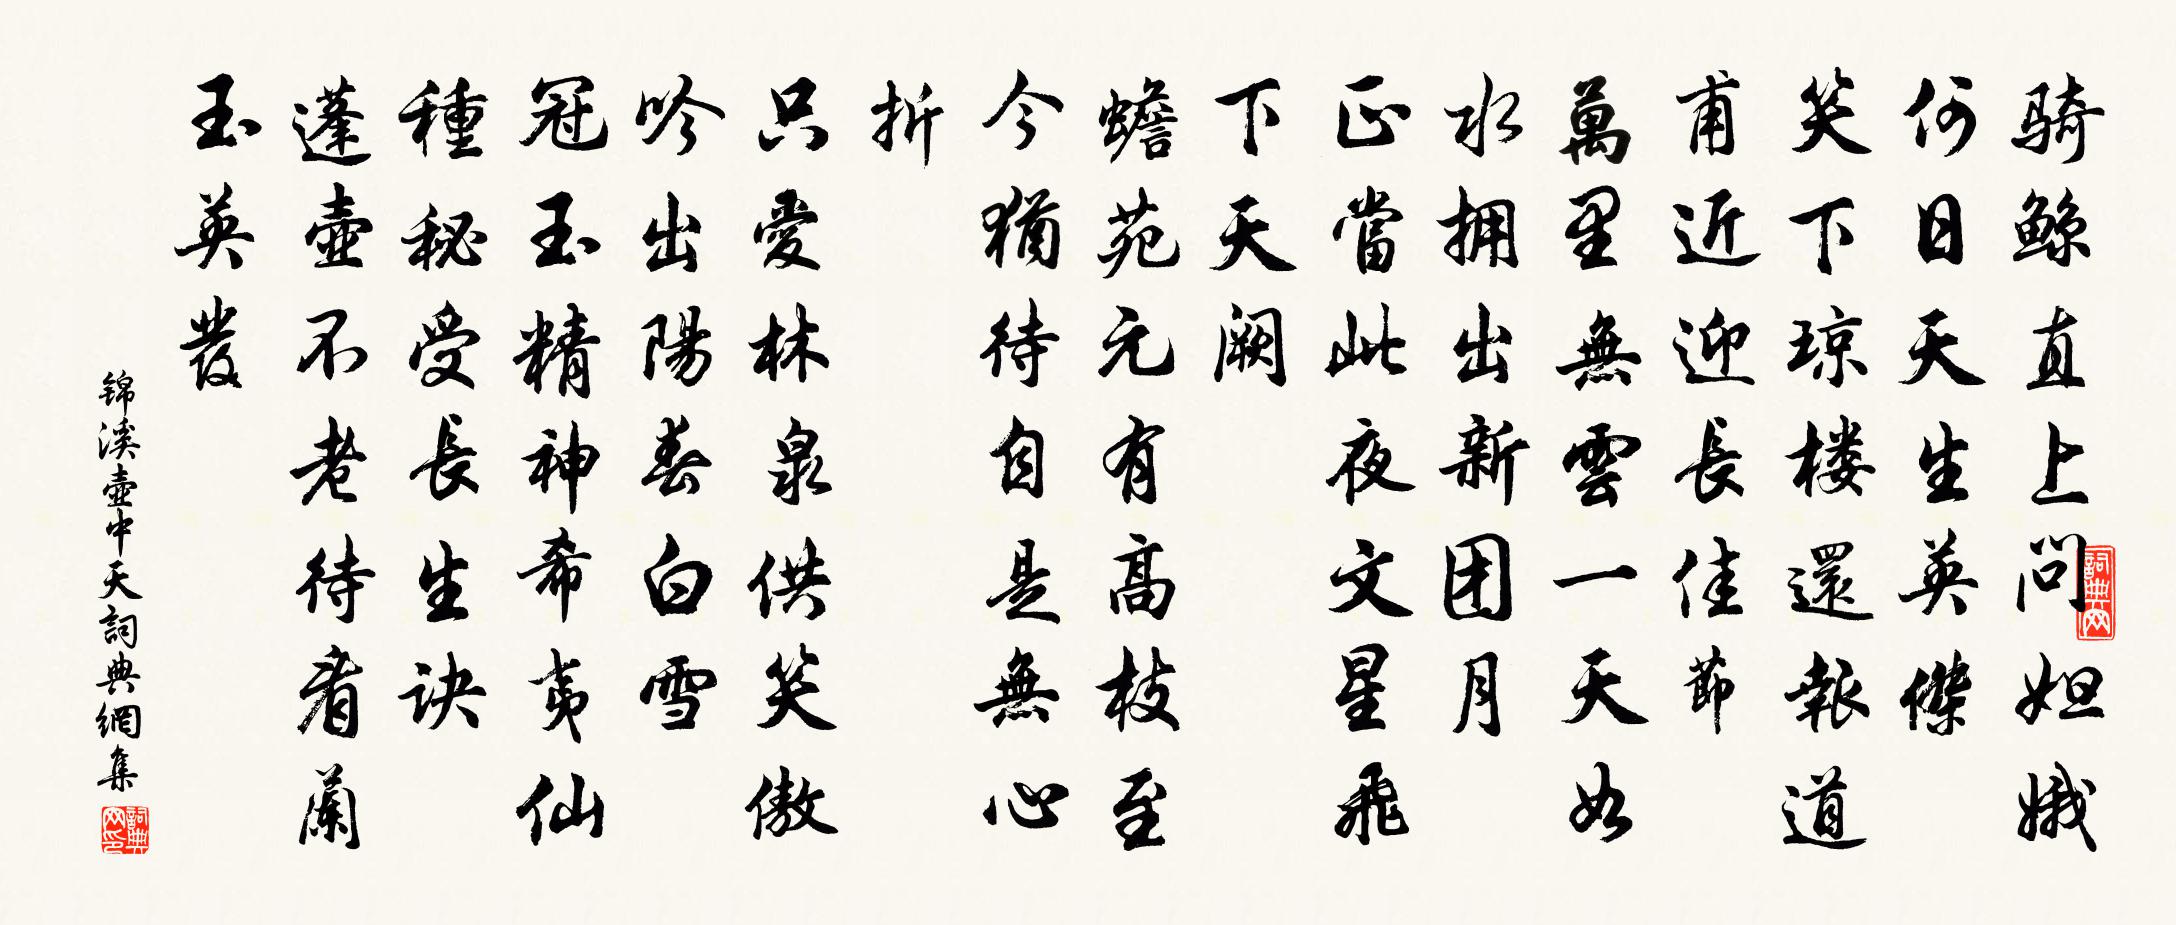 骑鲸直上问妲娥
何日天生英傑
笑下琼楼還報道
甫近迎長佳節
萬里無雲一天如
水拥出新团月
正當此夜文星飛
下天阙
蟾苑元有高枝至
今猶待自是無心
折
只愛林泉供笑傲
吟出陽春白雪
冠玉精神希夷仙
種秘受長生诀
蓬壷不老待看蘭
玉英發
錦溪壷中天詞典網集
詞典网
詞典网印